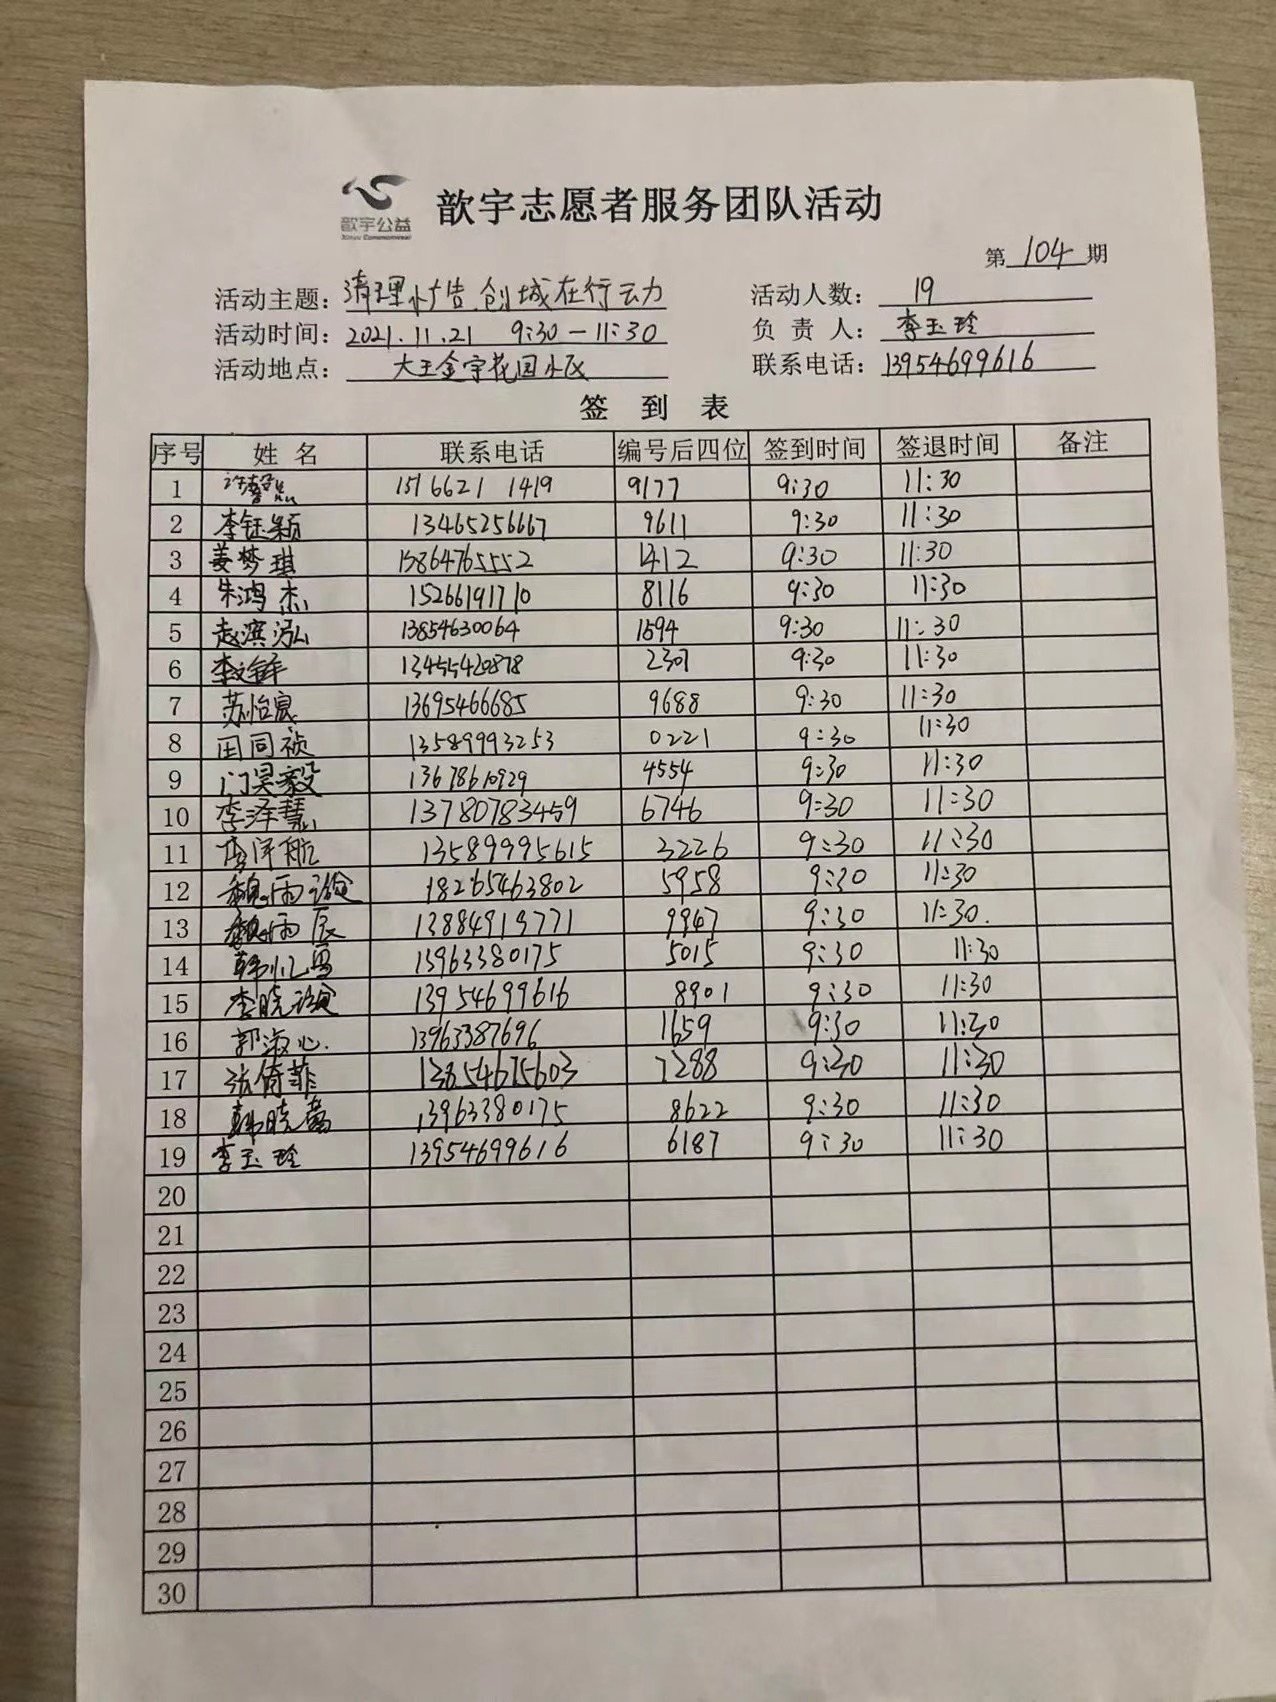 歆宇公益
Xinyu Commonweal
歆宇志愿者服务团队活动
第 104 期
活动主题： 清理小广告.创城在行动 活动人数： 19
活动时间： 2021.11.21 9:30—11:30 负责人： 李玉玲
活动地点： 大王金宇花园小区 联系电话： 13954699616
签到表
序号 姓名 联系电话 编号后四位 签到时间 签退时间 备注
1 许馨 1516621 1419 9177 9:30 11:30
2 李钰颖 13465256667 9611 9:30 11:30
3 姜梦琪 15864765552 1412 9:30 11:30
4 朱鸿杰 15266191710 8116 9:30 11:30
5 赵滨泓 13854630064 1594 9:30 11:30
6 李文锋 13455420878 2307 9:30 11:30
7 苏怡宸 13695466685 9688 9:30 11:30
8 田同祯 13589993253 0221 9:30 11:30
9 门昊毅 13678610929 4554 9:30 11:30
10 李泽慧 13780783459 6746 9:30 11:30
11 李泽航 13589995615 3226 9:30 11:30
12 魏雨 18265463802 5958 9:30 11:30
13 魏雨辰 13884919771 9947 9:30 11:30.
14 韩忆 13963380175 5015 9:30 11:30
15 李晓 13954699616 8901 9:30 11:30
16 郭淑心. 13963387696 1659 9:30 11:30
17 张倚菲 13854675603 7288 9:30 11:30
18 韩晓 13963380175 8622 9:30 11:30
19 李玉玲 13954699616 6187 9:30 11:30
20
21
22
23
24
25
26
27
28
29
30